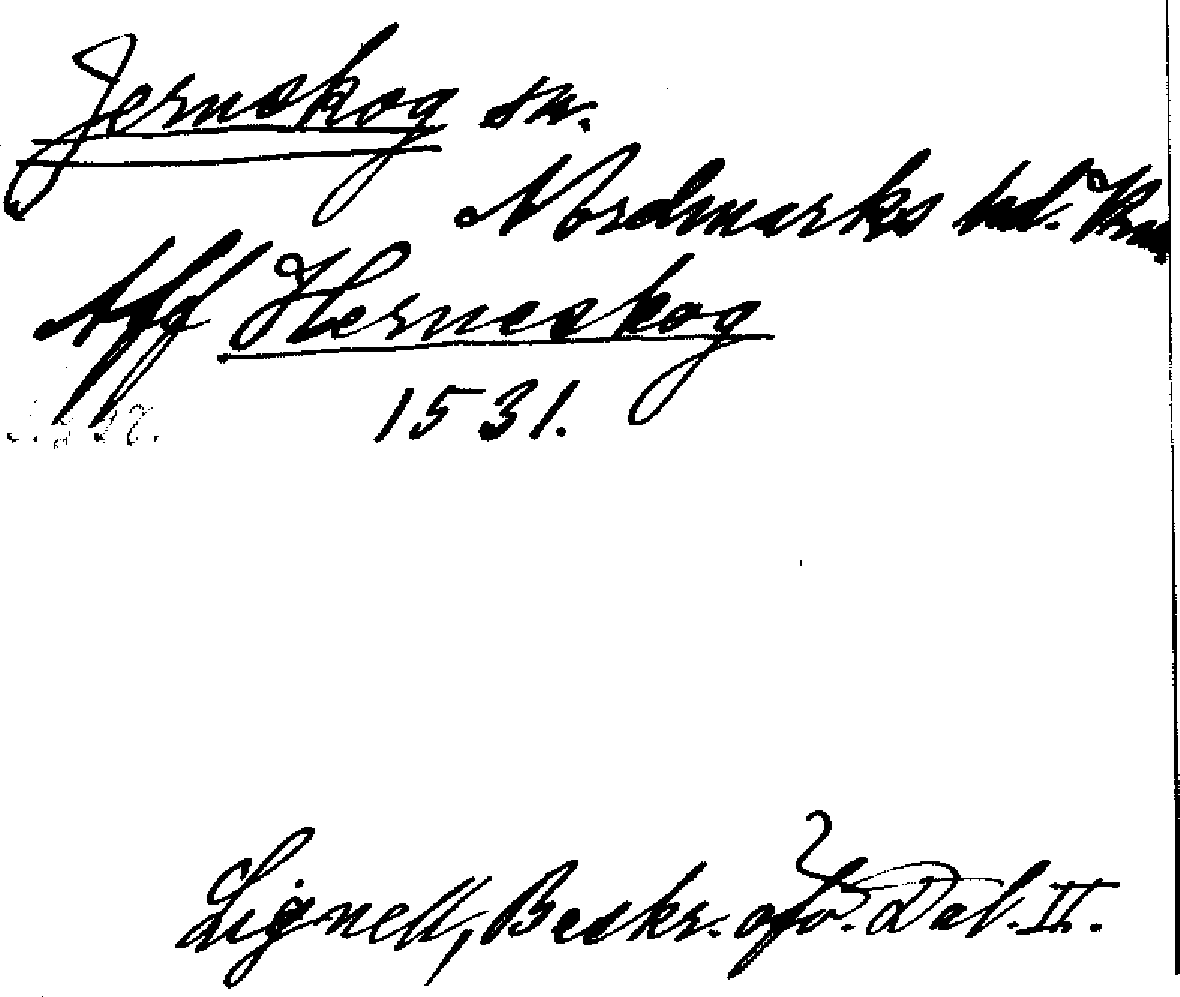 Jernskog sn.
Nordmarks hd.
Aff Herneskog
1531.
Lignell, Beskr. öfv. Dal. II.